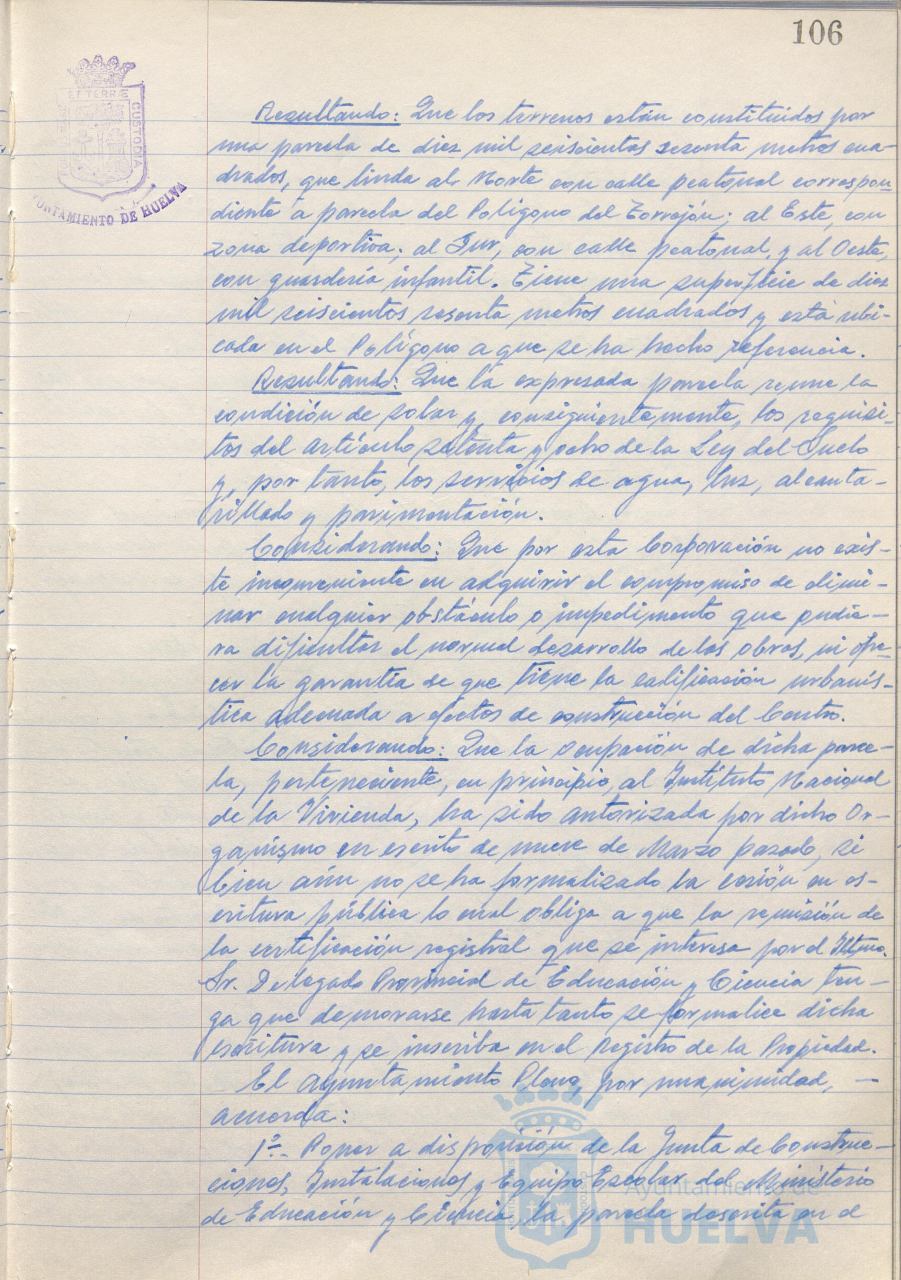 106
ET TERRÆ
CUSTODIA
AYUNTAMIENTO DE HUELVA
Resultando: Que los terrenos están constituídos por
una parcela de diez mil seiscientos sesenta metros cua-
drados, que linda al Norte con calle peatonal correspon-
diente a parcela del Polígono del Torrejón; al Este, con
zona deportiva; al Sur, con calle peatonal, y al Oeste,
con guardería infantil. Tiene una superficie de diez
mil seiscientos sesenta metros cuadrados y está ubi-
cada en el Polígono a que se ha hecho referencia.
Resultando: Que la expresada parcela reune la
condición de solar y, consiguientemente, los requisi-
tos del artículo setenta y ocho de la Ley del Suelo
y, por tanto, los servicios de agua, luz, alcanta-
rillado y pavimentación.
Considerando: Que por esta Corporación no exis-
te inconveniente en adquirir el compromiso de elimi-
nar cualquier obstáculo o impedimento que pudie-
ra dificultar el normal desarrollo de las obras, ni ofre-
cer la garantía de que tiene la calificación urbanís-
tica adecuada a efectos de construcción del Centro.
Considerando: Que la ocupación de dicha parce-
la, perteneciente, en principio, al Instituto Nacional
de la Vivienda, ha sido autorizada por dicho Or-
ganismo en escrito de nueve de Marzo pasado, si
bien aún no se ha formalizado la cesión en es-
critura pública lo cual obliga a que la remisión de
la certificación registral que se interesa por el Iltmo.
Sr. Delegado Provincial de Educación y Ciencia ten-
ga que demorarse hasta tanto se formalice dicha
escritura y se inscriba en el Registro de la Propiedad.
El Ayuntamiento Pleno, por unanimidad, —
acuerda:
1º.- Poner a disposición de la Junta de Construc-
ciones, Instalaciones y Equipo Escolar del Ministerio
de Educación y Ciencia, la parcela descrita en el
Ayuntamiento de
HUELVA